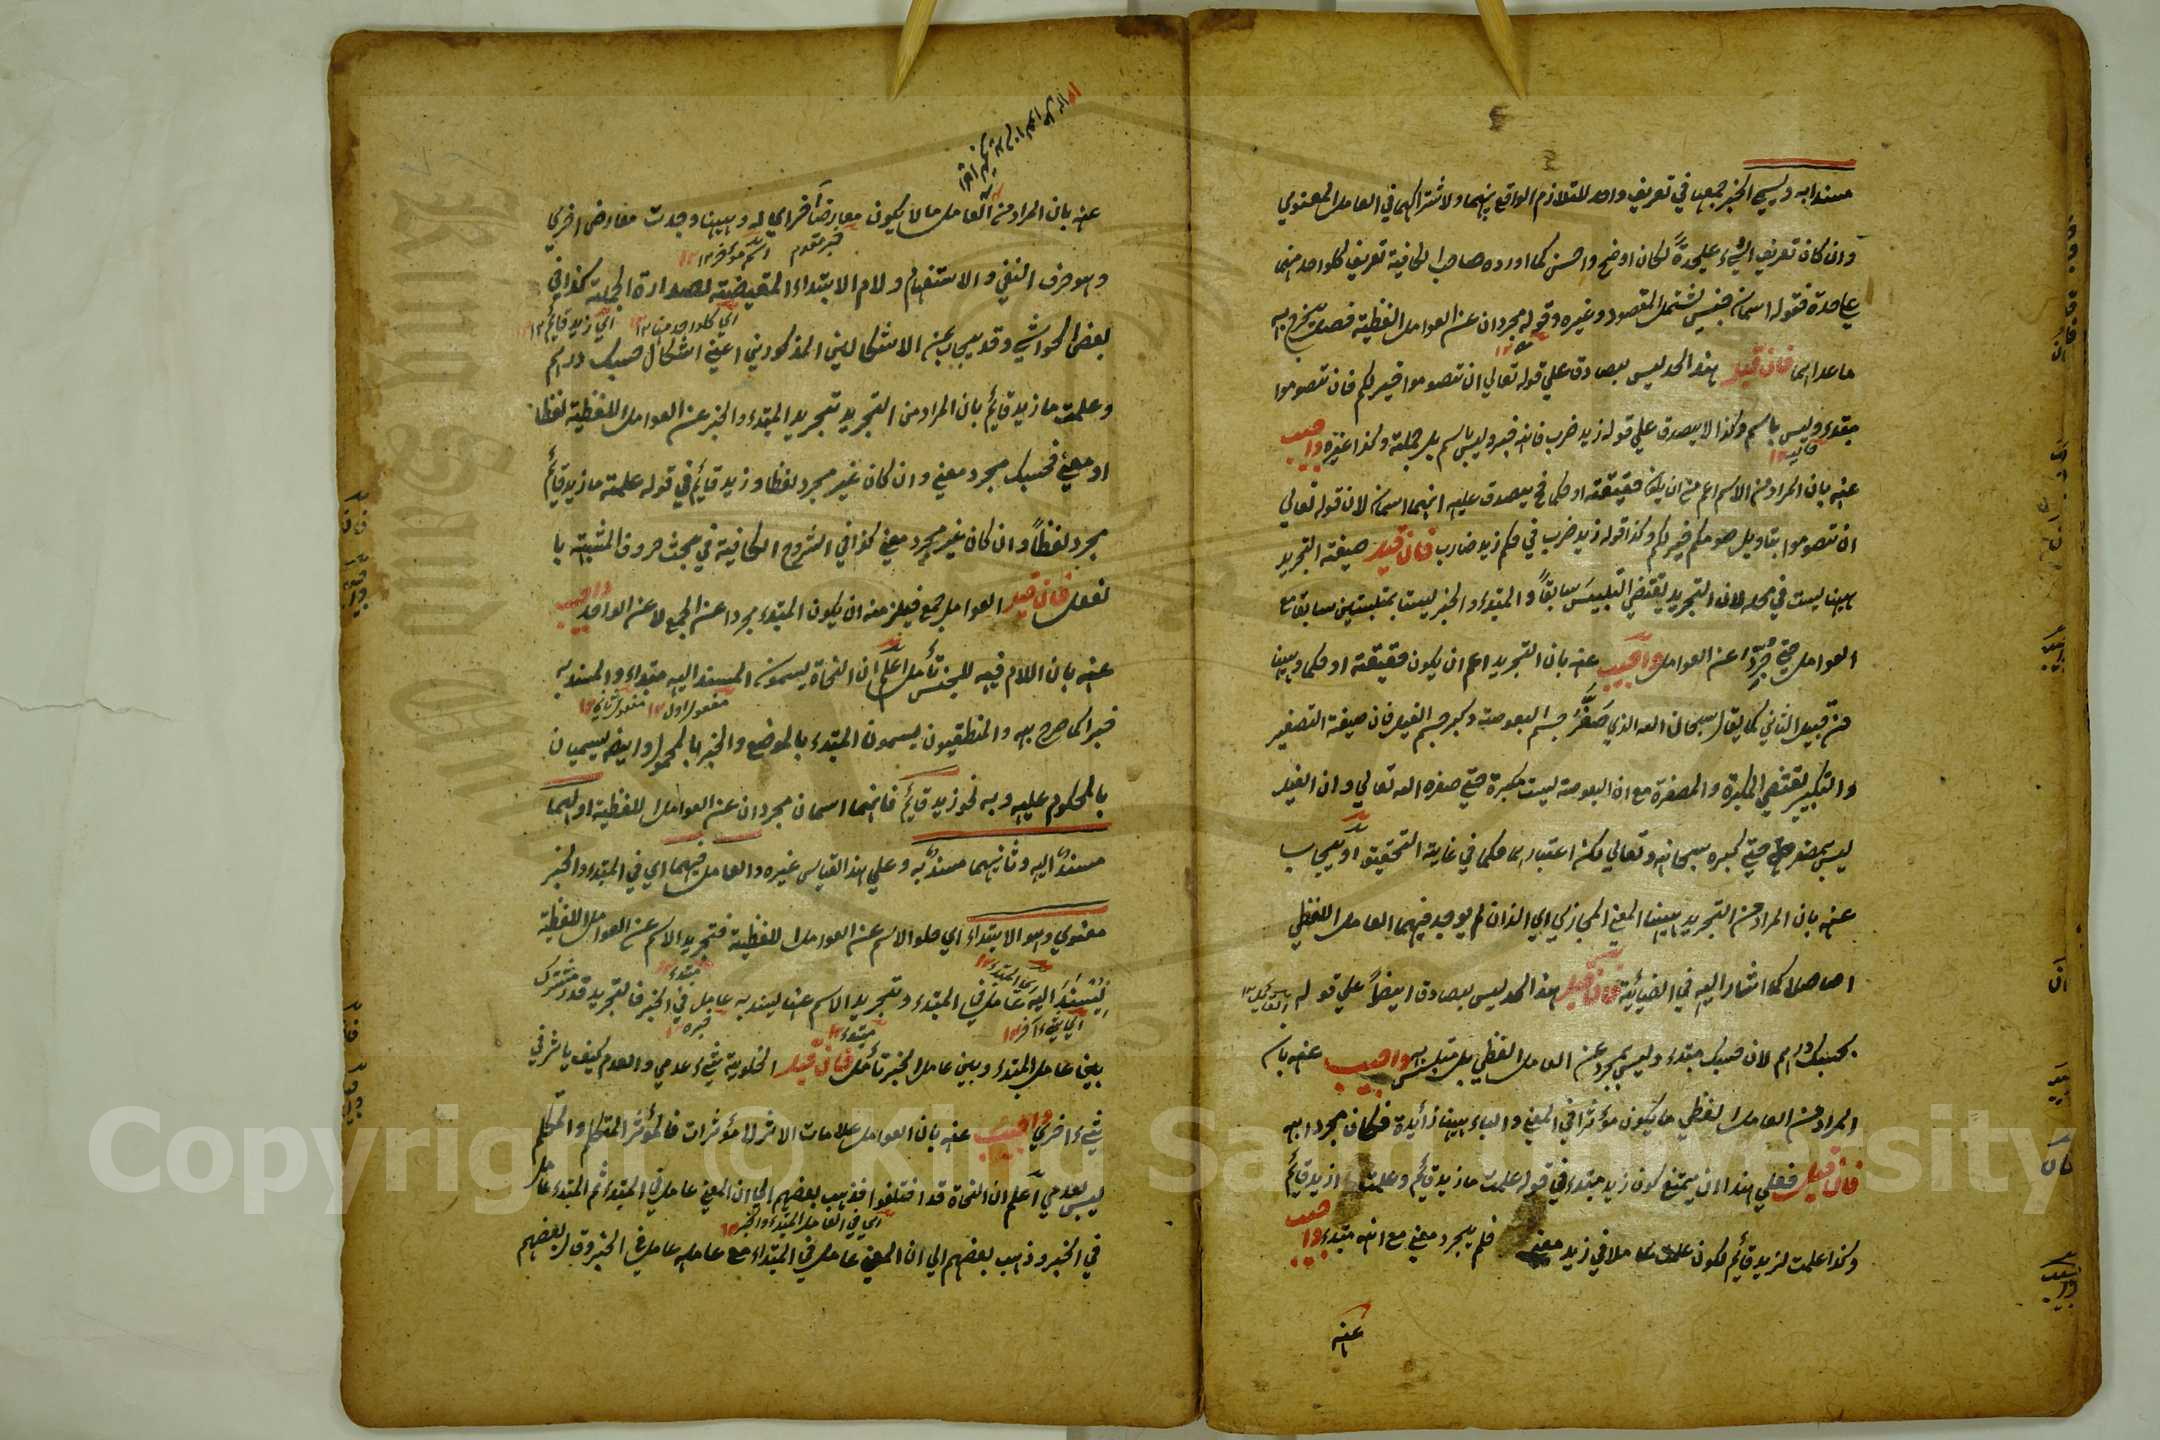 مسندا به ويسمي الخبر جمعهما في تعريف واحد للتلازم الواقع بينهما ولاشتراكهما في العامل المعنوي
وان كان تعريف الشيء عليحدةً لكان اوضح واحسن كما اورده صاحب الكافية تعريف كلواحد منهما
علحدة فقوله اسمان جنس يشتمل المقصود وغيره وقوله مجردان عن العوامل اللفظية فصل يخرج به
ما عداهما فان قيل هذا الحد ليس بصادق علي قوله تعالي ان تصوموا خير لكم فان تصوموا
مبتدء وليس باسم وكذا لا يصدق علي قوله زيد ضرب فانه خبر وليس باسم بل جملة وكذا غيره واجيب
عنه بان المراد من الاسم اعم من ان يكون حقيقة او حكما فح يصدق عليه انهما اسمان لان قوله تعالي
ان تصوموا بتاويل صومكم خير لكم وكذا قوله زيد ضرب في حكم زيد ضارب فان قيل صيغة التجريد
ههنا ليست في محله لان التجريد يقتضي التلبيس سابقاً والمبتدء والخبر ليستا بمتلبستين سابقا مع
العوامل حتي جُرِّدا عن العوامل واجيب عنه بان التجريد اعم ان يكون حقيقة او حكما وههنا
من قبيل الثاني كما يقال سبحان الله الذي صَغَّرَ جسم البعوضة وكبر جسم الفيل فان صيغة التصغير
والتكبير يقتضي المكبرة والمصغرة مع ان البعوضة ليست مكبرة حتي صغره الله تعالي وان الفيل
ليس بمصغر حتي كبره سبحانه وتعالي لكن اعتبارهما حكما في غاية التحقيق او يجاب
عنه بان المراد من التجريد ههنا المعني المجازي اي الذان لم يوجد فيهما العامل اللفظي
اصاصلا كما اشار اليه في الضيائية فان قيل هذا الحد ليس بصادق ايضاً علي قوله
بحسبك درهم لان حسبك مبتدء وليس بمجرد عن العامل اللفظي بل متلبس به واجيب عنه بان
المراد من العامل لفظي ما يكون مؤثرا في المعني والباء ههنا زائدة فكان مجردا به
فان قيل فعلي هذا ان يمتنع كون زيد مبتدء في قوله علمت ما زيد قائم وعلمت ازيد قائم
وكذا علمت لزيد قائم لكون علمت عاملا في زيد معني فلم يجرد معني مع انه مبتدء واجيب
عنه
عنه بان المراد من العامل ما لا يكون معارضاً آخر اي له وههنا وجدت معارض اخري
خبر مقدم اسم مؤخر ١٢
وهو حرف النفي والاستفهام ولام الابتداء المقيضية لصدارة الجملة كذا في
اي كلواحد منها ١٢ اي زيد قايم ١٢
بعض الحواشي وقد يجاب عن الاشكالين المذكورين اعني اشكال حسبك درهم
وعلمت ما زيد قائم بان المراد من التجريد تجريد المبتدء والخبر عن العوامل اللفظية لفظا
او معني فحسبك مجرد معني وان كان غير مجرد لفظا وزيد قائم في قوله علمت ما زيد قايم
مجرد لفظاً وان كان غير مجرد معني كذا في الشروح الكافية في مبحث حروف المشبهة با
لفعل فان قيل العوامل جمع فيلزمنه ان يكون المبتدء مجردا عن الجمع لا عن الواحد واجيب
عنه بان اللام فيه للجنس تأمل اعلم ان النحاة يسمون المسند اليه مبتداء والمسند به
مفعول اول ١٢ مفعول ثاني ١٢
خبرا كما صرح به والمنطقيون يسمون المبتدء بالموضع والخبر بالمحمول وايضا يسميان
بالمحكوم عليه وبه نحو زيد قايم فانهما اسمان مجردان عن العوامل اللفظية اولهما
مسندٌ اليه وثانيهما مسندٌ به وعلي هذا القياس غيره والعامل فيهما اي في المبتدء والخبر
معنوي وهو الابتداء اي خلو الاسم عن العوامل اللفظية فتجريد الاسم عن العوامل اللفظية
لِيُسْنَدَ اليه عامل في المبتدء وتجريد الاسم عنها ليسند به عامل في الخبر فالتجريد قدر مشترك
اي شيء آخر ١٢ مبتدء ١٢ خبره ١٢
بين عامل المبتدء وبين عامل الخبر تأمل فان قيل الخلوية شيء عدمي والعدم كيف ياثر في
شيء اخري واجيب عنه بان العوامل علامات الاثر لا مؤثرات فالمؤثر المتكلم والمتكلم
ليس بعدمي اعلم ان النحاة قد اختلفوا فذهب بعضهم الي ان المعني عامل في المبتداء ثم المبتدء عامل
اي في العامل المبتدء والخبر ١٢
في الخبر وذهب بعضهم الي ان المعني عامل في المبتداء مع عامله عامل في الخبر وقال بعضهم
Copyright © King Saud University